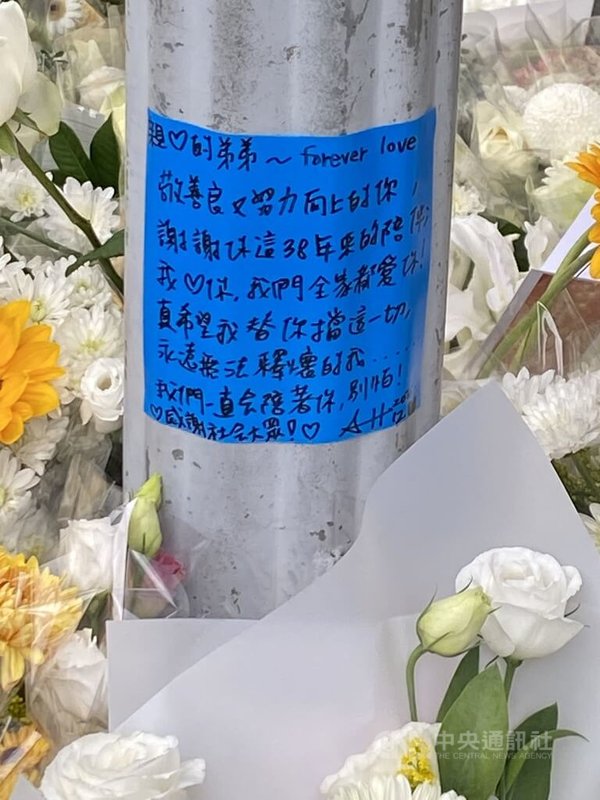 親♡的弟弟~forever love
敬善良又努力向上的你,
謝謝你這38年來的陪伴;
我♡你,我們全家都愛你!
真希望我替你擋這一切,
永遠無法釋懷的我......
我們一直會陪著你,別怕!
♡感謝社會大眾!♡
中央通訊社
THE CENTRAL NEWS AGENCY